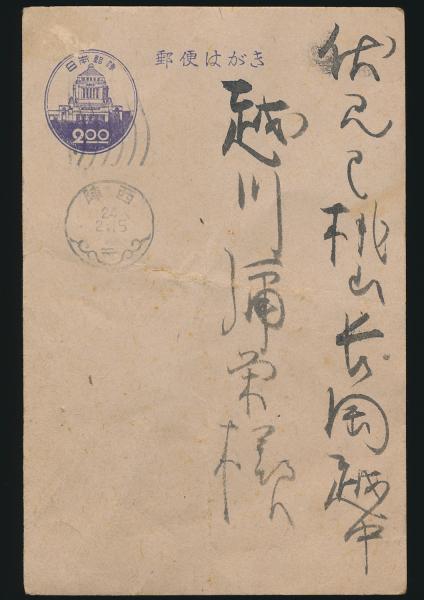 伏見区桃山長岡越中
越川彌栄様
郵便はがき
日本郵便
2.00
西陣
24
2.15